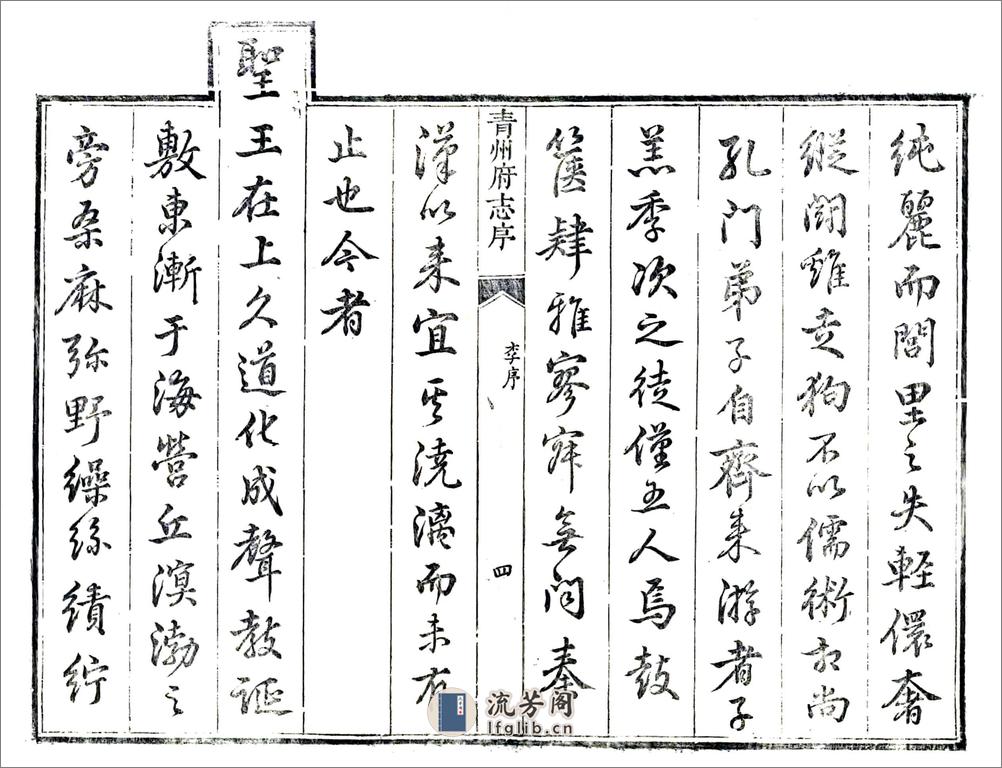 純麗而閭里之失輕儇奢
縱鬪雞走狗不以儒術相尚
孔門弟子自齊来游者子
羔季次之徒僅五人焉鼓
篋肄雅寥寂無聞秦
青州府志序
李序
四
漢以来宜其澆漓而未有
止也今者
聖王在上久道化成聲教誕
敷東漸于海營丘溟渤之
旁桑麻弥野繰絲績紵
流芳阁
lfglib.cn